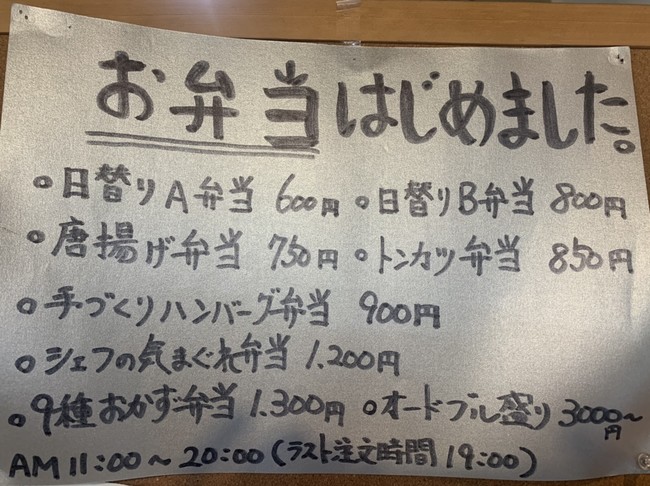 お弁当はじめました。
○日替りA弁当 600円 ○日替りB弁当 800円
○唐揚げ弁当 750円 ○トンカツ弁当 850円
○手づくりハンバーグ弁当 900円
○シェフの気まぐれ弁当 1.200円
○9種おかず弁当 1.300円 ○オードブル盛り 3000〜円
AM 11:00〜20:00(ラスト注文時間 19:00)